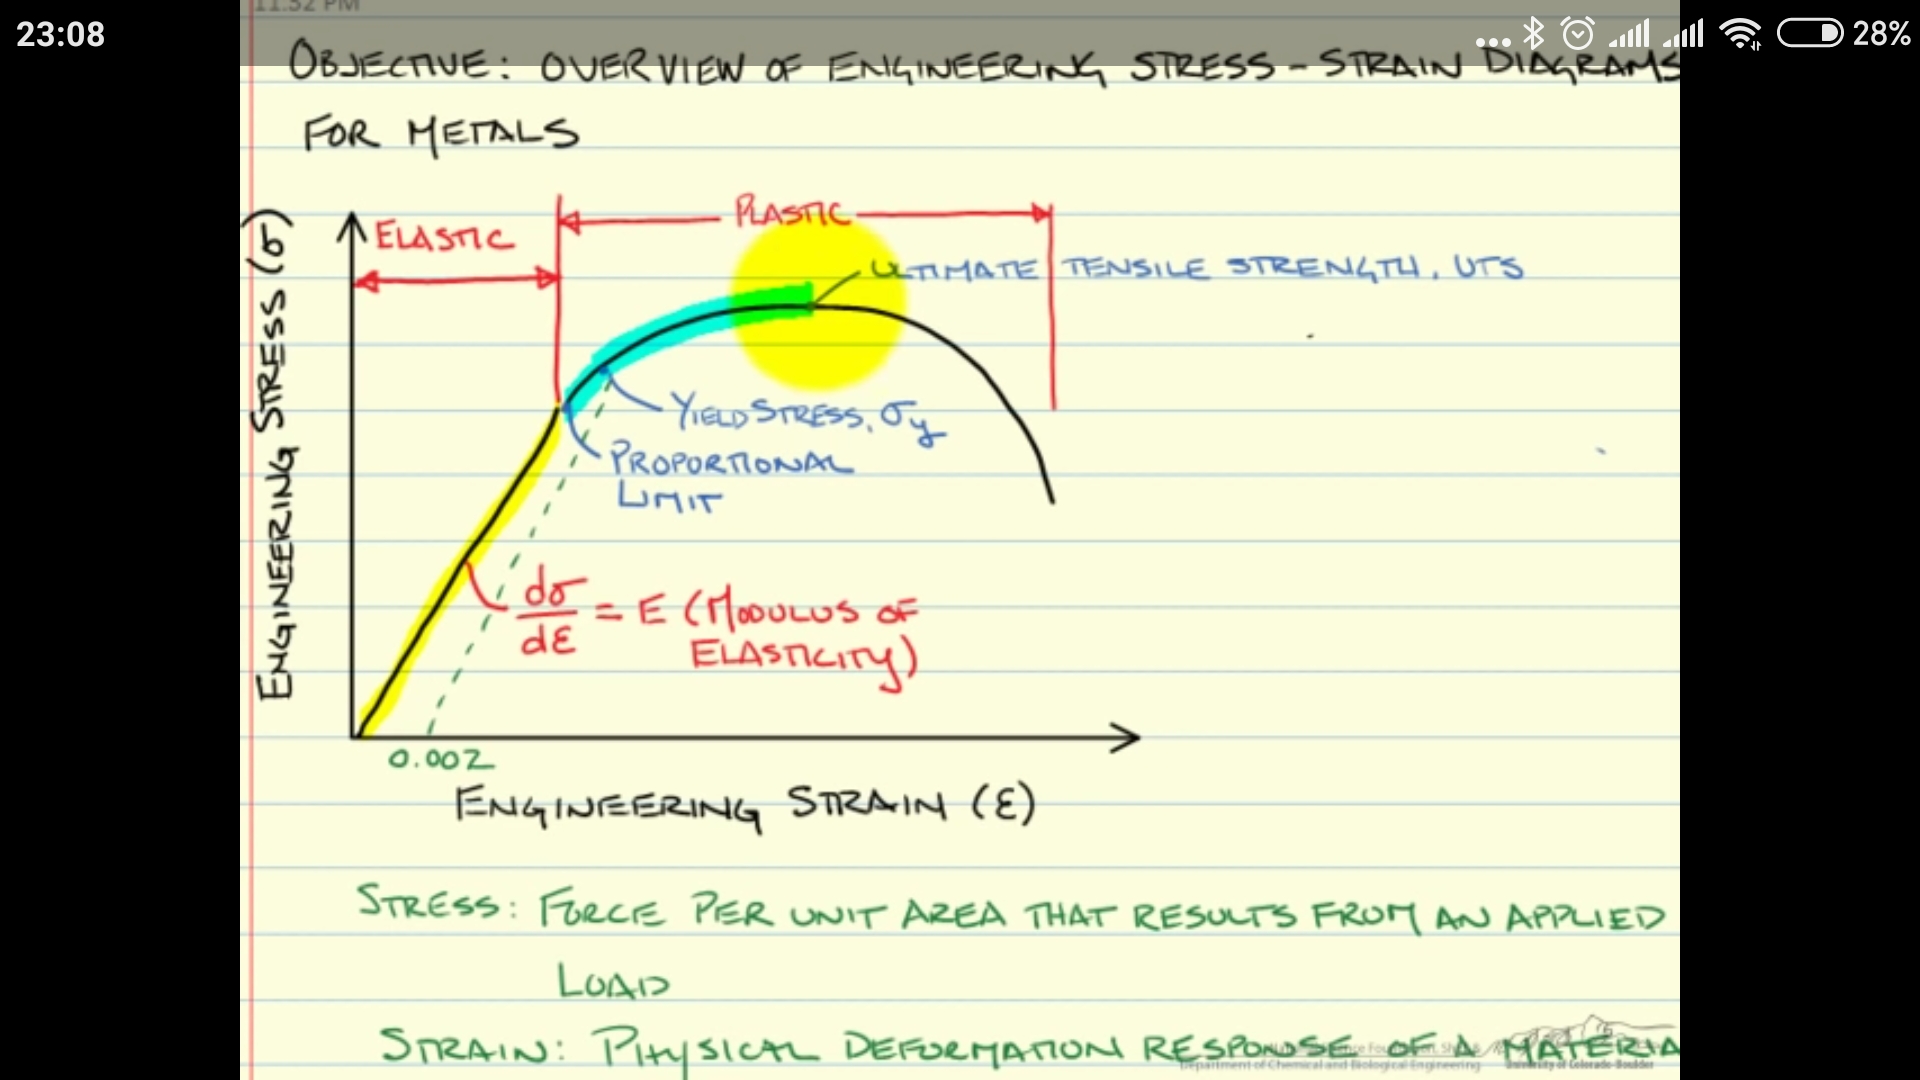 11:52 PM
23:08
28%
OBJECTIVE: OVERVIEW OF ENGINEERING STRESS - STRAIN DIAGRAMS
FOR METALS
PLASTIC
ELASTIC
ULTIMATE TENSILE STRENGTH, UTS
ENGINEERING STRESS (σ)
YIELD STRESS, σy
PROPORTIONAL
LIMIT
dσ/dε = E (MODULUS OF
ELASTICITY)
0.002
ENGINEERING STRAIN (ε)
STRESS: FORCE PER UNIT AREA THAT RESULTS FROM AN APPLIED
LOAD
STRAIN: PHYSICAL DEFORMATION RESPONSE OF A MATERIA
Department of Chemical and Biological Engineering
University of Colorado Boulder